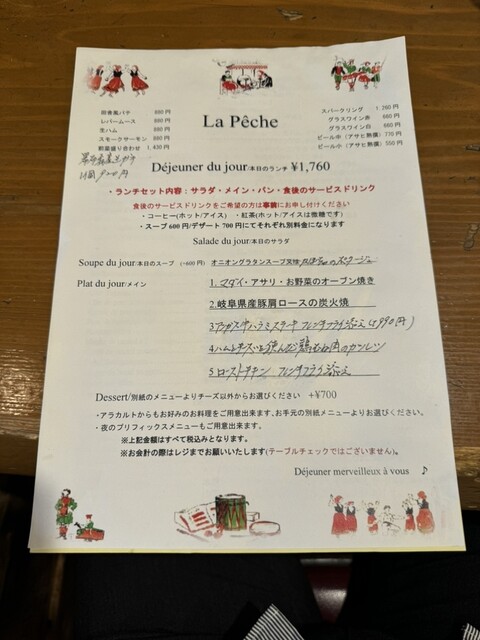 田舎風パテ 880円
レバームース 880円
生ハム 880円
スモークサーモン 880円
前菜盛り合わせ 1,430円
スパークリング 1,260円
グラスワイン赤 660円
グラスワイン白 660円
ビール中(アサヒ熟撰) 770円
ビール小(アサヒ熟撰) 550円
La Pêche
Déjeuner du jour/本日のランチ ¥1,760
・ランチセット内容:サラダ・メイン・パン・食後のサービスドリンク
食後のサービスドリンクをご希望の方は事前にお申し付けください
・コーヒー(ホット/アイス) ・紅茶(ホット/アイスは微糖です)
・スープ600円/デザート700円にてそれぞれ別料金になります
Salade du jour/本日のサラダ
Soupe du jour/本日のスープ (+600円) オニオングラタンスープ又は のポタージュ
Plat du jour/メイン
1. マダイ・アサリ・お野菜のオーブン焼き
2.岐阜県産豚肩ロースの炭火焼
3.アンガス牛ハラミステーキ フレンチフライ添え(+990円)
4.ハムとチーズを挟んだ鶏むね肉のカツレツ
5.ローストチキン フレンチフライ添え
Dessert/別紙のメニューよりチーズ以外からお選びください +¥700
・アラカルトからもお好みのお料理をご用意出来ます。お手元の別紙メニューよりお選びください。
・夜のプリフィックスメニューもご用意出来ます。
※上記金額はすべて税込みとなります。
※お会計の際はレジまでお願いいたします(テーブルチェックではございません)。
Déjeuner merveilleux à vous ♪